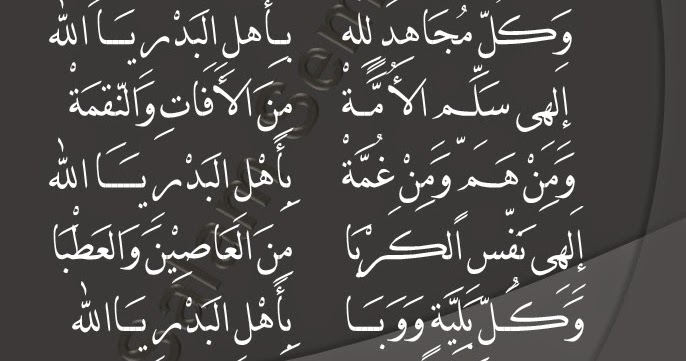 وَكُلِّ مُجَاهِدٍ لِلّٰهِ بِأَهْلِ الْبَدْرِ يَا اللهُ
إِلٰهِى سَلِّمِ الأُمَّةْ مِنَ الأَفَاتِ وَالنِّقْمَةْ
وَمِنْ هَمٍّ وَمِنْ غُمَّةْ بِأَهْلِ الْبَدْرِ يَا اللهُ
إِلٰهِى نَفِّسِ الْكَرْبَا مِنَ الْعَاصِيْنَ وَالْعَطْبَا
وَكُلِّ بَلِيَّةٍ وَوَبَا بِأَهْلِ الْبَدْرِ يَا اللهُ